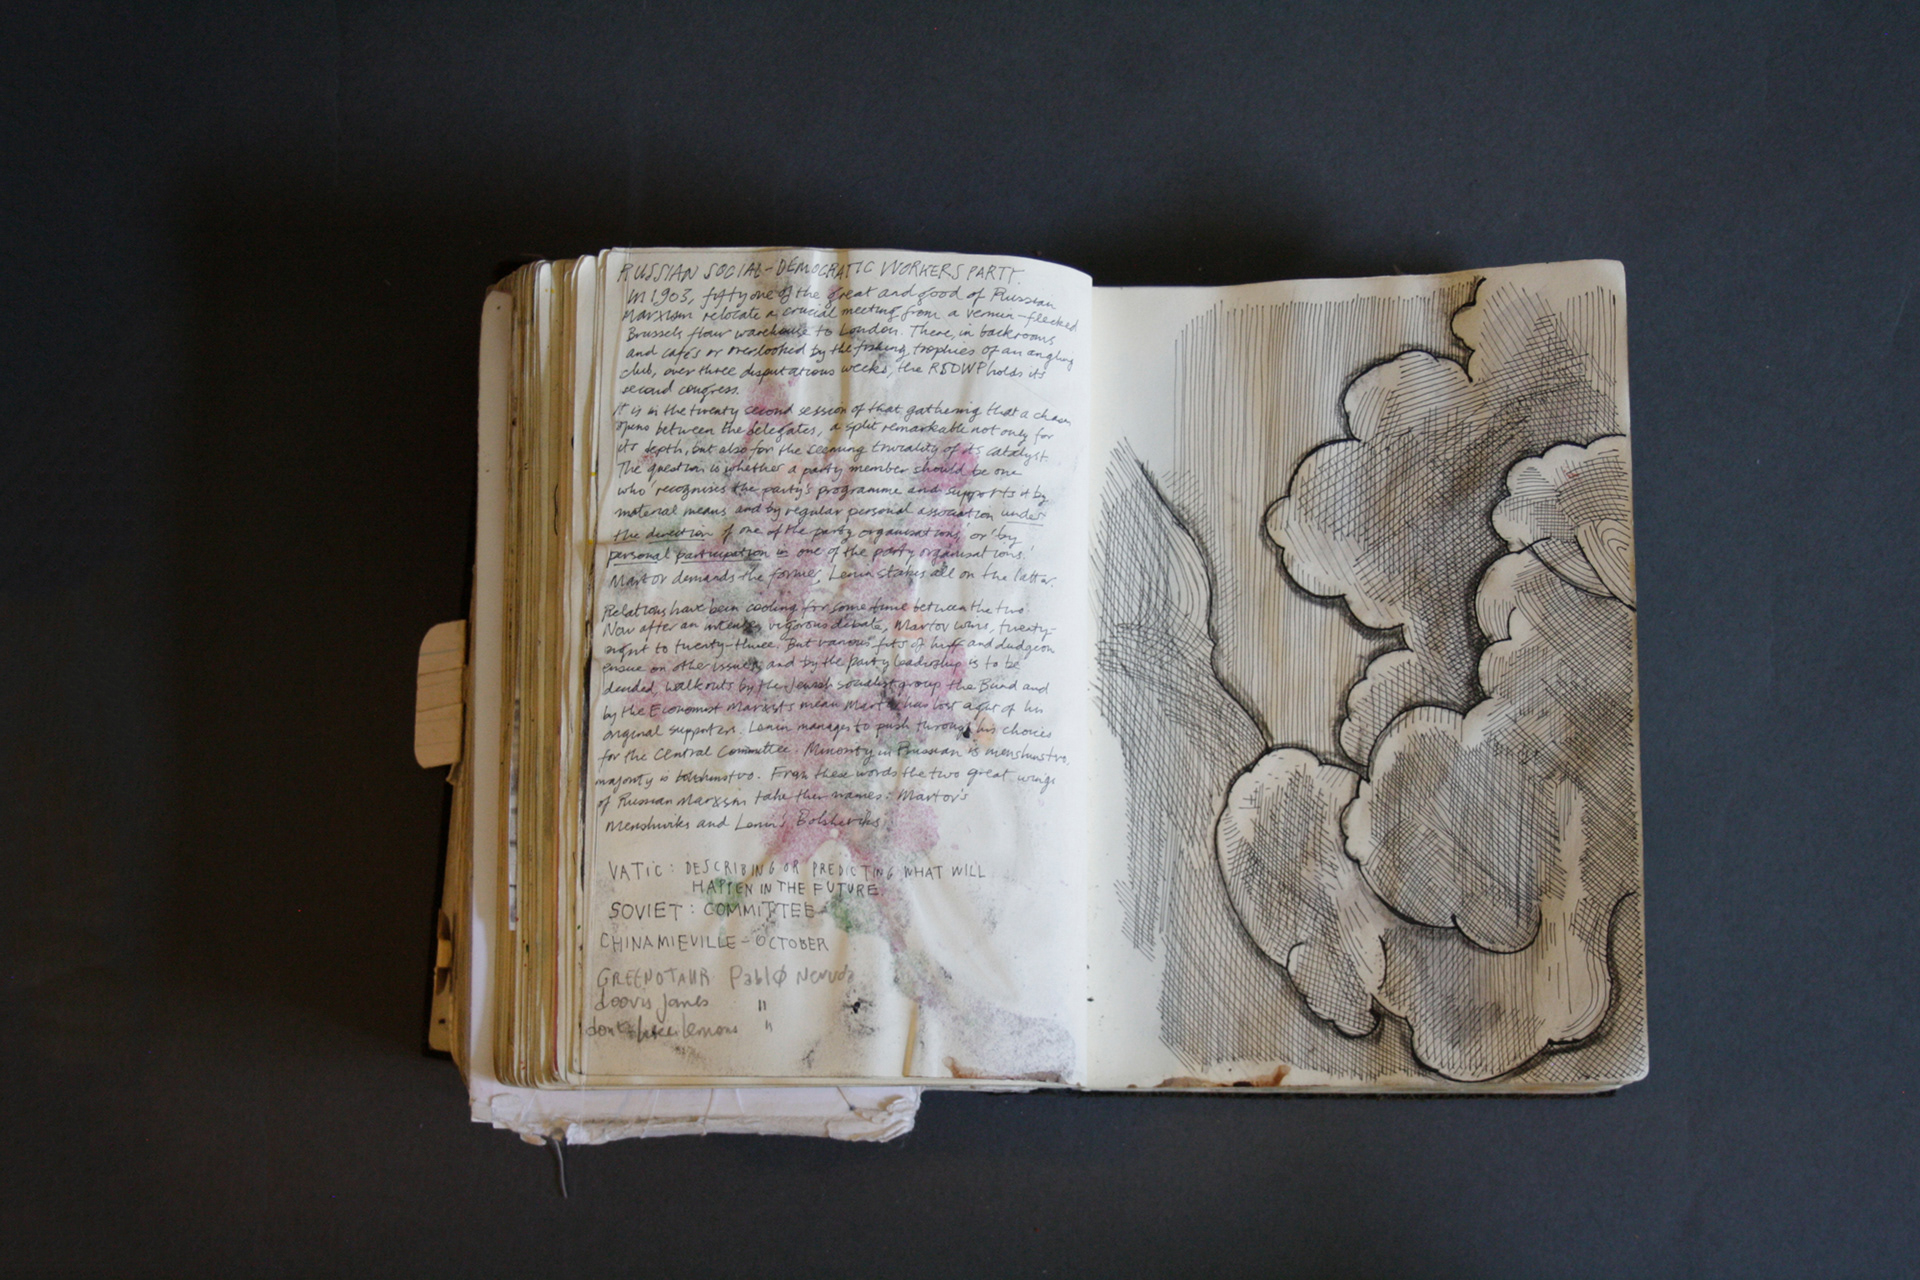 RUSSIAN SOCIAL-DEMOCRATIC WORKERS PARTY.
In 1903, fifty one of the great and good of Russian
Marxism relocate a crucial meeting from a vermin-flecked
Brussels flour warehouse to London. There, in backrooms
and cafés or overlooked by the fishing trophies of an angling
club, over three disputatious weeks, the RSDWP holds its
second congress.
It is in the twenty second session of that gathering that a chasm
opens between the delegates, a split remarkable not only for
its depth, but also for the seeming triviality of its catalyst.
The question is whether a party member should be one
who 'recognises the party's programme and supports it by
material means and by regular personal association under
the direction of one of the party organisations', or 'by
personal participation in one of the party organisations.'
Martov demands the former, Lenin stakes all on the latter.
Relations have been cooling for some time between the two.
Now after an intense, vigorous debate, Martov wins, twenty-
eight to twenty-three. But various fits of huff and dudgeon
ensue on other issues, and by the party leadership is to be
decided, walkouts by the Jewish socialist group the Bund and
by the Economist Marxists mean Martov has lost eight of his
original supporters. Lenin manages to push through his choices
for the Central Committee. Minority in Russian is menshinstvo,
majority is bolshinstvo. From these words the two great wings
of Russian Marxism take their names: Martov's
Menshiviks and Lenin's Bolsheviks
VATIC: DESCRIBING OR PREDICTING WHAT WILL
HAPPEN IN THE FUTURE.
SOVIET: COMMITTEE
CHINAMIEVILLE - OCTOBER
Pablø Neruda
janes "
lemons "